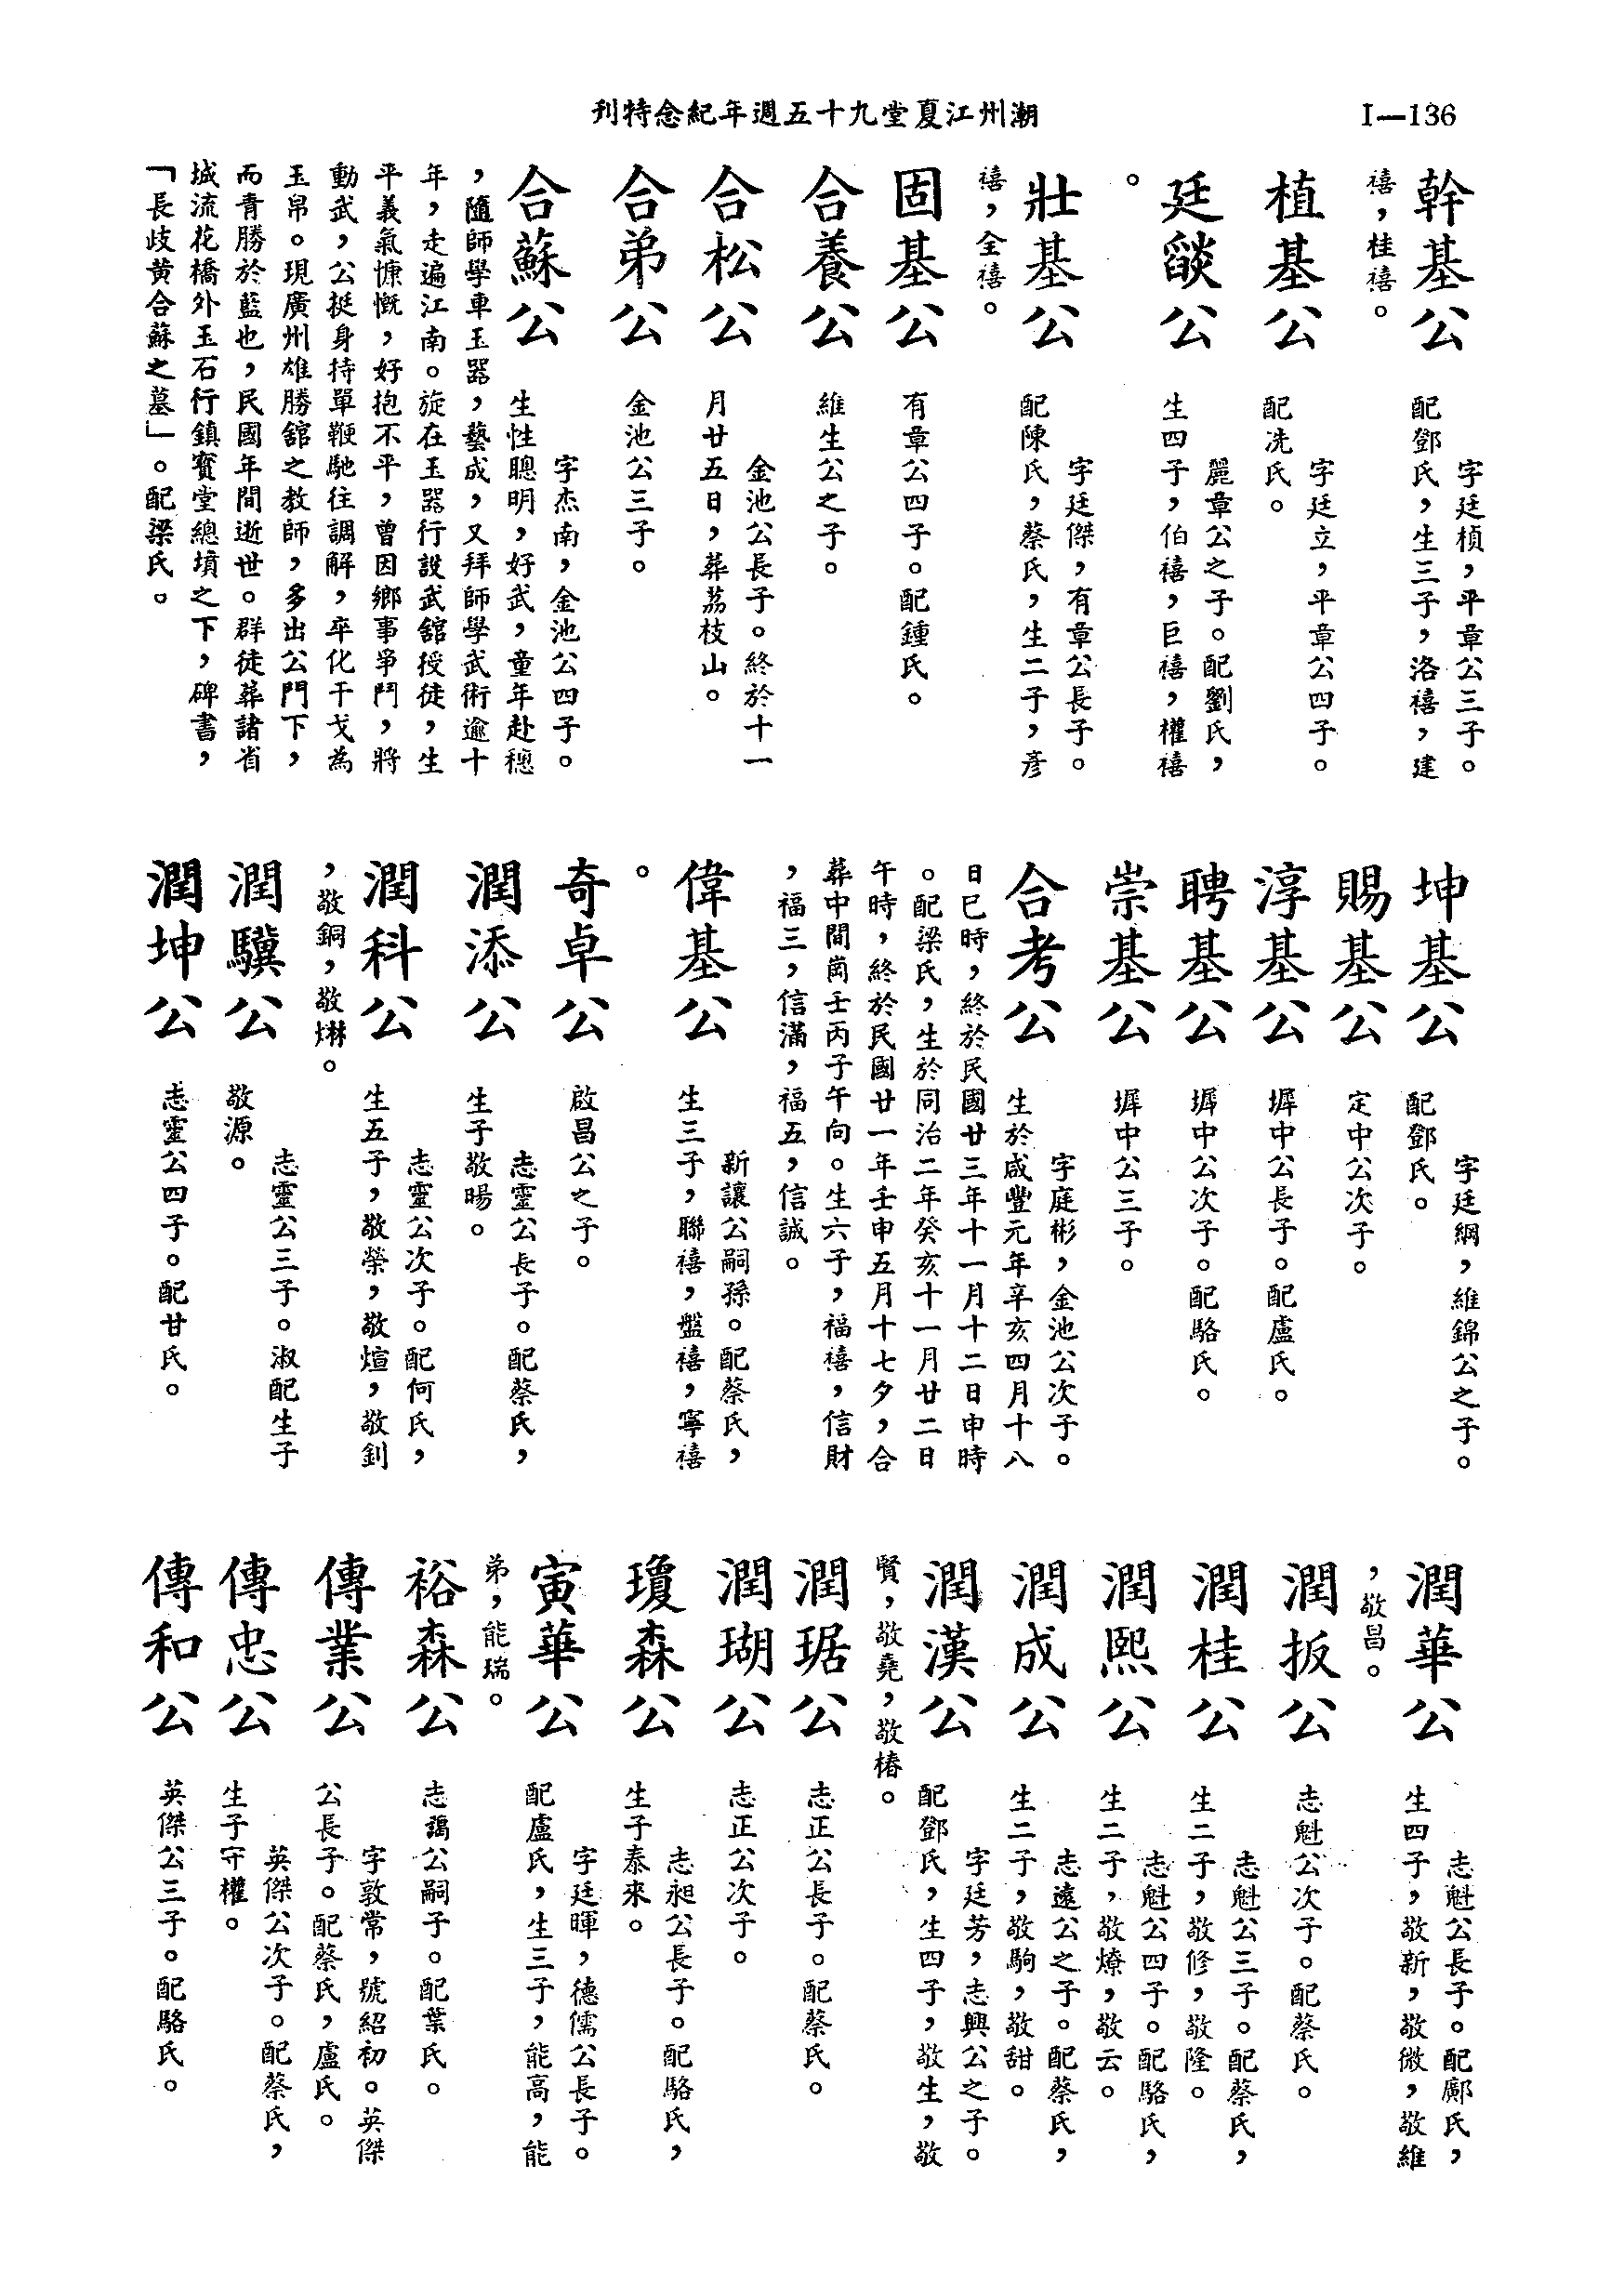 潮州江夏堂九十五週年紀念特刊
I—136
幹基公
字廷楨，平章公三子。
配鄧氏，生三子，洛禧，建
禧，桂禧。
植基公
字廷立，平章公四子。
配冼氏。
廷燄公
麗章公之子。配劉氏，
生四子，伯禧，巨禧，權禧
。
壯基公
字廷傑，有章公長子。
配陳氏，蔡氏，生二子，彥
禧，全禧。
固基公
有章公四子。配鍾氏。
合養公
維生公之子。
合松公
金池公長子。終於十一
月廿五日，葬荔枝山。
合弟公
金池公三子。
合蘇公
字杰南，金池公四子。
生性聰明，好武，童年赴穗
，隨師學車玉器，藝成，又拜師學武術逾十
年，走遍江南。旋在玉器行設武舘授徒，生
平義氣慷慨，好抱不平，曾因鄉事爭鬥，將
動武，公挺身持單鞭馳往調解，卒化干戈為
玉帛。現廣州雄勝舘之教師，多出公門下，
而青勝於藍也，民國年間逝世。群徒葬諸省
城流花橋外玉石行鎮寶堂總墳之下，碑書，
「長歧黃合蘇之墓」。配梁氏。
坤基公
字廷綱，維錦公之子。
配鄧氏。
賜基公
定中公次子。
淳基公
墀中公長子。配盧氏。
聘基公
墀中公次子。配駱氏。
崇基公
墀中公三子。
合考公
字庭彬，金池公次子。
生於咸豐元年辛亥四月十八
日巳時，終於民國廿三年十一月十二日申時
。配梁氏，生於同治二年癸亥十一月廿二日
午時，終於民國廿一年壬申五月十七夕，合
葬中間崗壬丙子午向。生六子，福禧，信財
，福三，信滿，福五，信誠。
偉基公
新讓公嗣孫。配蔡氏，
生三子，聯禧，盤禧，寧禧
。
奇卓公
啟昌公之子。
潤添公
志靈公長子。配蔡氏，
生子敬暘。
潤科公
志靈公次子。配何氏，
生五子，敬榮，敬煊，敬釗
，敬銅，敬㷠。
潤驥公
志靈公三子。淑配生子
敬源。
潤坤公
志靈公四子。配甘氏。
潤華公
志魁公長子。配鄺氏，
生四子，敬新，敬微，敬維
，敬昌。
潤扳公
志魁公次子。配蔡氏。
潤桂公
志魁公三子。配蔡氏，
生二子，敬修，敬隆。
潤熙公
志魁公四子。配駱氏，
生二子，敬燎，敬云。
潤成公
志遠公之子。配蔡氏，
生二子，敬駒，敬甜。
潤漢公
字廷芳，志興公之子。
配鄧氏，生四子，敬生，敬
賢，敬堯，敬椿。
潤琚公
志正公長子。配蔡氏。
潤瑚公
志正公次子。
瓊森公
志昶公長子。配駱氏，
生子泰來。
寅華公
字廷暉，德儒公長子。
配盧氏，生三子，能高，能
弟，能瑞。
裕森公
志謁公嗣子。配葉氏。
傳業公
字敦常，號紹初。英傑
公長子。配蔡氏，盧氏。
傳忠公
英傑公次子。配蔡氏，
生子守權。
傳和公
英傑公三子。配駱氏。